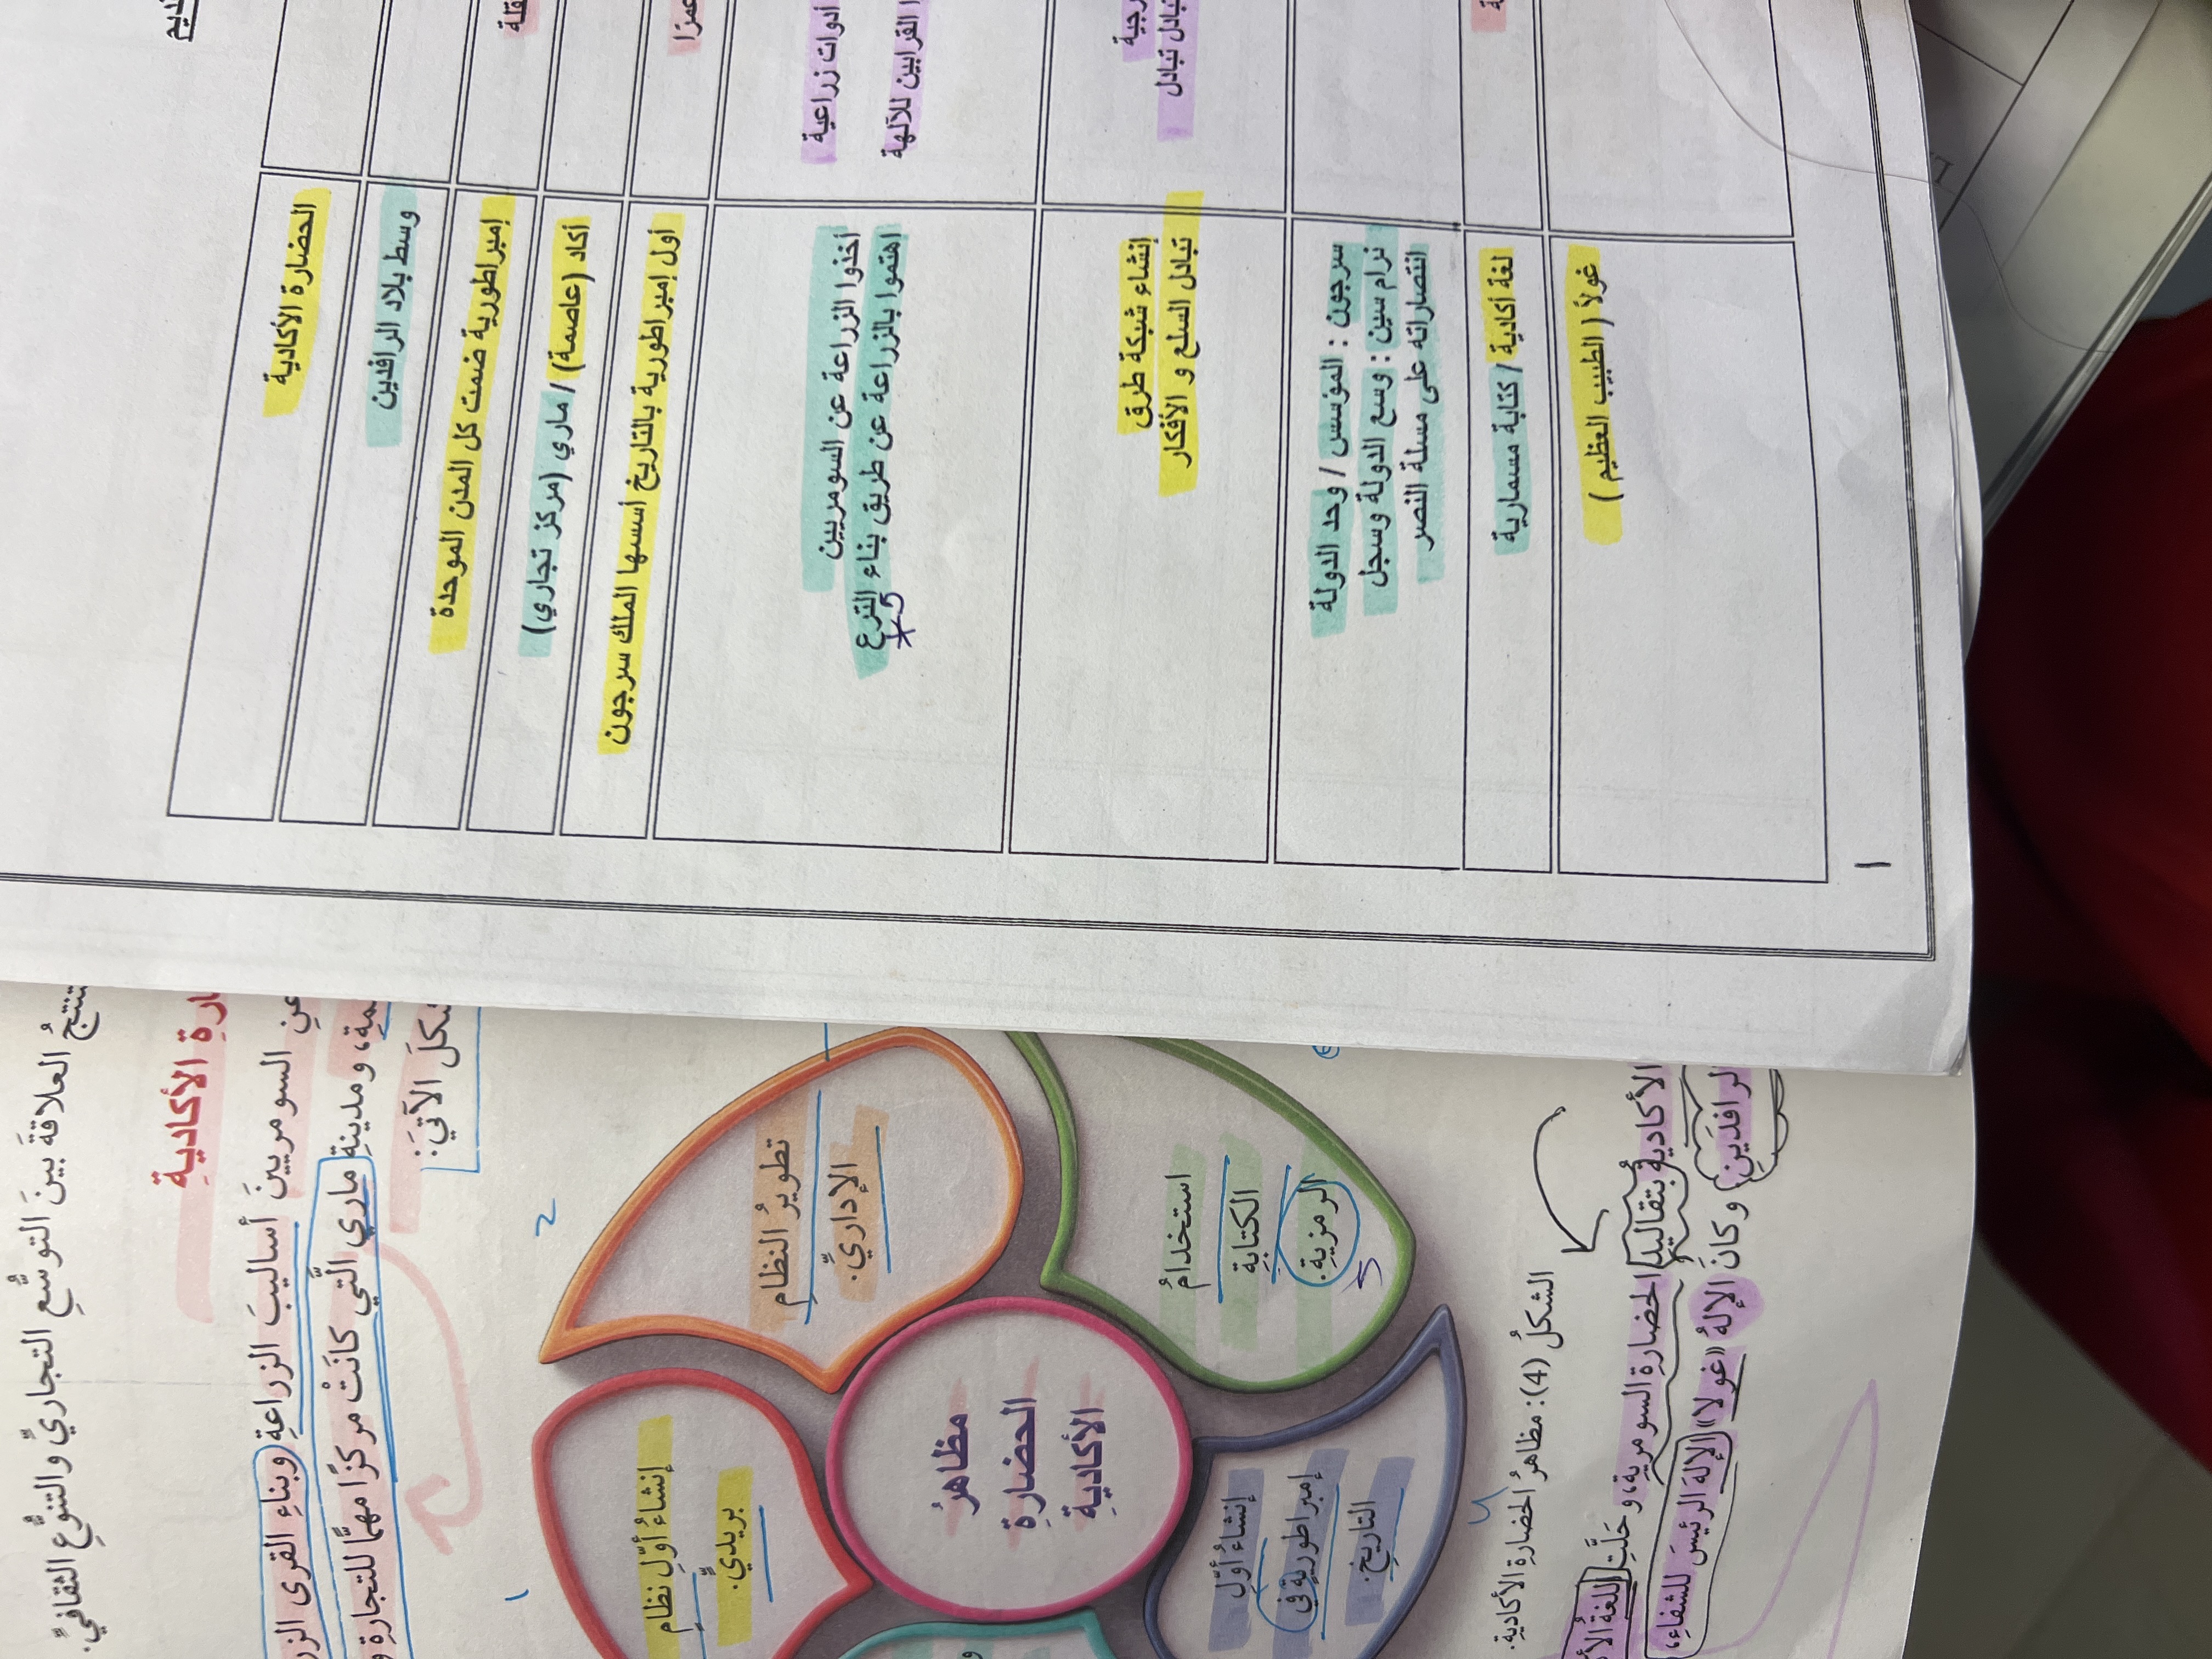 الحضارة الأكادية
وسط بلاد الرافدين
إمبراطورية ضمت كل المدن الموحدة
أكاد (عاصمة) / ماري (مركز تجاري)
أول إمبراطورية بالتاريخ أسسها الملك سرجون
أخذوا الزراعة عن السومريين
اهتموا بالزراعة عن طريق بناء الترع
إنشاء شبكة طرق
تبادل السلع و الأفكار
سرجون : المؤسس / وحد الدولة
نرام سين : وسع الدولة وسجل
انتصاراته على مسلة النصر
لغة أكادية / كتابة مسمارية
غولا ( الطبيب العظيم )
أدوات زراعية
القرابين للآلهة
تبادل
١
العلاقةَ بينَ التوسُّعِ التجاريِّ والتنوُّعِ الثقافيِّ.
الأكاديةِ
عنِ السومريينَ أساليبَ الزراعةِ وبناءِ القرى
ومدينةِ ماري الَّتي كانَتْ مركزًا مهمًّا للتجارةِ
الآتيَ:
تطويرُ النظامِ
الإداريِّ.
إنشاءُ أوَّلِ نظامٍ
بريديٍّ.
مظاهرُ
الحضارةِ
الأكاديةِ
استخدامُ
الكتابةِ
الرمزيةِ.
إنشاءُ أوَّلِ
إمبراطوريةٍ في
التاريخِ.
الشكلُ (4): مظاهرُ الحضارةِ الأكاديةِ.
الأكاديةُ بتقاليدِ الحضارةِ السومريةِ، وحَلَّتِ اللغةُ
وكانَ الإلهُ «غولا» الإلهَ الرئيسَ للشفاءِ،